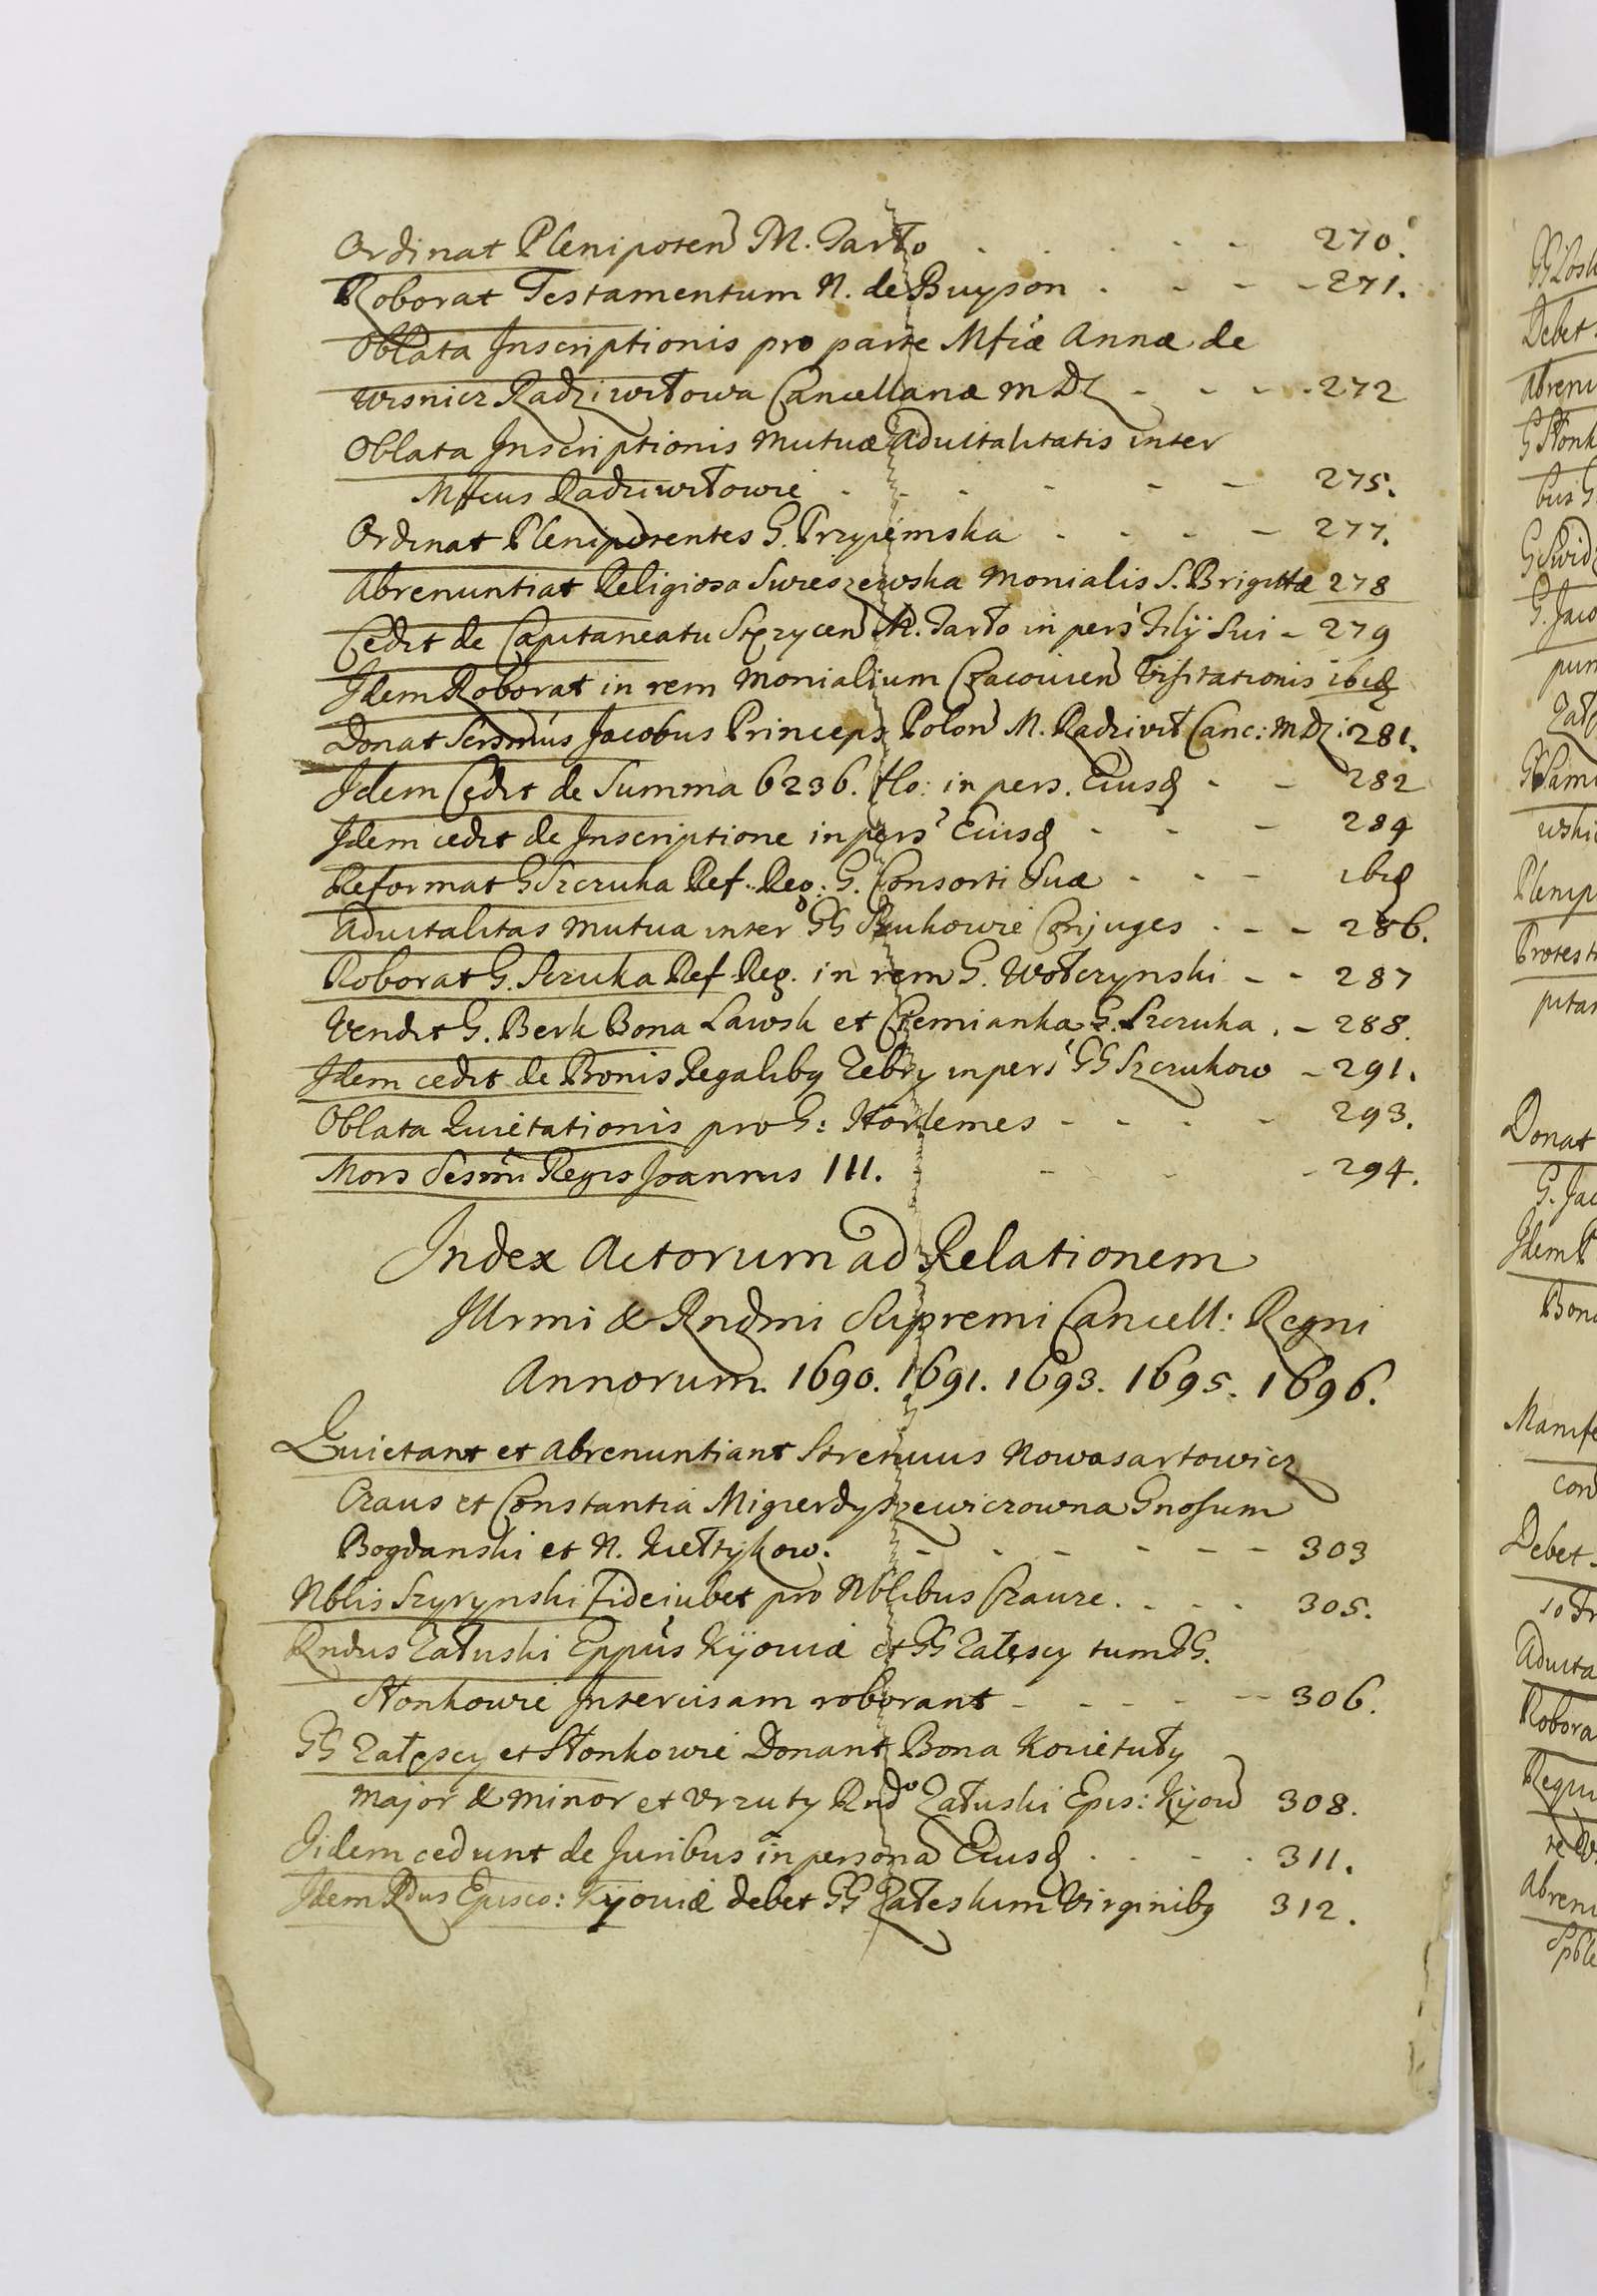 Ordinat Plenipoten M. Tarło - - - - - 270.
Roborat Testamentum N. de Buyson - - - - 271.
Oblata Inscriptionis pro parte Mficæ Annæ de
Wisnicz Radziwiłowa Cancellariæ M D L - - - - 272
Oblata Inscriptionis mutuæ advitalitatis inter
Mficus Radziwiłowie - - - - - - 275.
Ordinat Plenipotentes G. Przyiemska - - - - 277.
Abrenuntiat Religiosa Swieszewska Monialis S. Brigittæ 278
Cedit de Capitaneatu Stęzycen M. Tarło in pers Filÿ Sui - 279
Idem Roborat in rem Monialium Cracovien Visitationis ibid
Donat Sersmus Jacobus Princeps Polon M. Radziwił Canc: M D L: 281.
Idem Cedit de Summa 6236. flo: in pers. Eiusd - - 282
Idem cedit de Inscriptione in pers Eiusd - - - 284
Reformat G Szczuka Ref: Reg: G. Consorti Suæ - - - ibid
Advitalitas mutua inter GG Szczukowie Conjuges - - - 286.
Roborat G. Szczuka Ref. Reg. in rem G. Wołczynski - - 287
Vendit G. Berk Bona Lawsk et Czemianka G. Szczuka . - 288.
Idem cedit de Bonis Regalibq Zebry in pers GG Szczukow - 291.
Oblata Quietationis pro G: Hordemes - - - - 293.
Mors Sersmi Regis Joannis III. - - - 294.
Index Actorum ad Relationem
Illrmi & Rndmi Supremi Cancell: Regni
Annorum. 1690. 1691. 1693. 1695. 1696.
Quietant et Abrenuntiant Strenuus Nowasartowicz
Craus et Constantia Migierdyszewiczowna Gnosum
Bogdanski et N. Kiełtykow. - - - - - - - 303
Nblis Szyrynski fideiubet pro Nblibus Craure . - - - 305.
Rndus Załuski Eppus Kÿoviæ et GG Zalescy tum GG.
Słonkowie Intercisam roborant - - - - - 306.
GG Zalescy et Słonkowie Donant Bona Kovietuły
Major & Minor et Vrzuty Rndo Załuski Epis: Kÿov 308.
Iidem cedunt de Juribus in persona Eiusd - - - - 311.
Idem Rdus Episco: Kÿoviæ debet GG Zaleskim Virginibq 312.